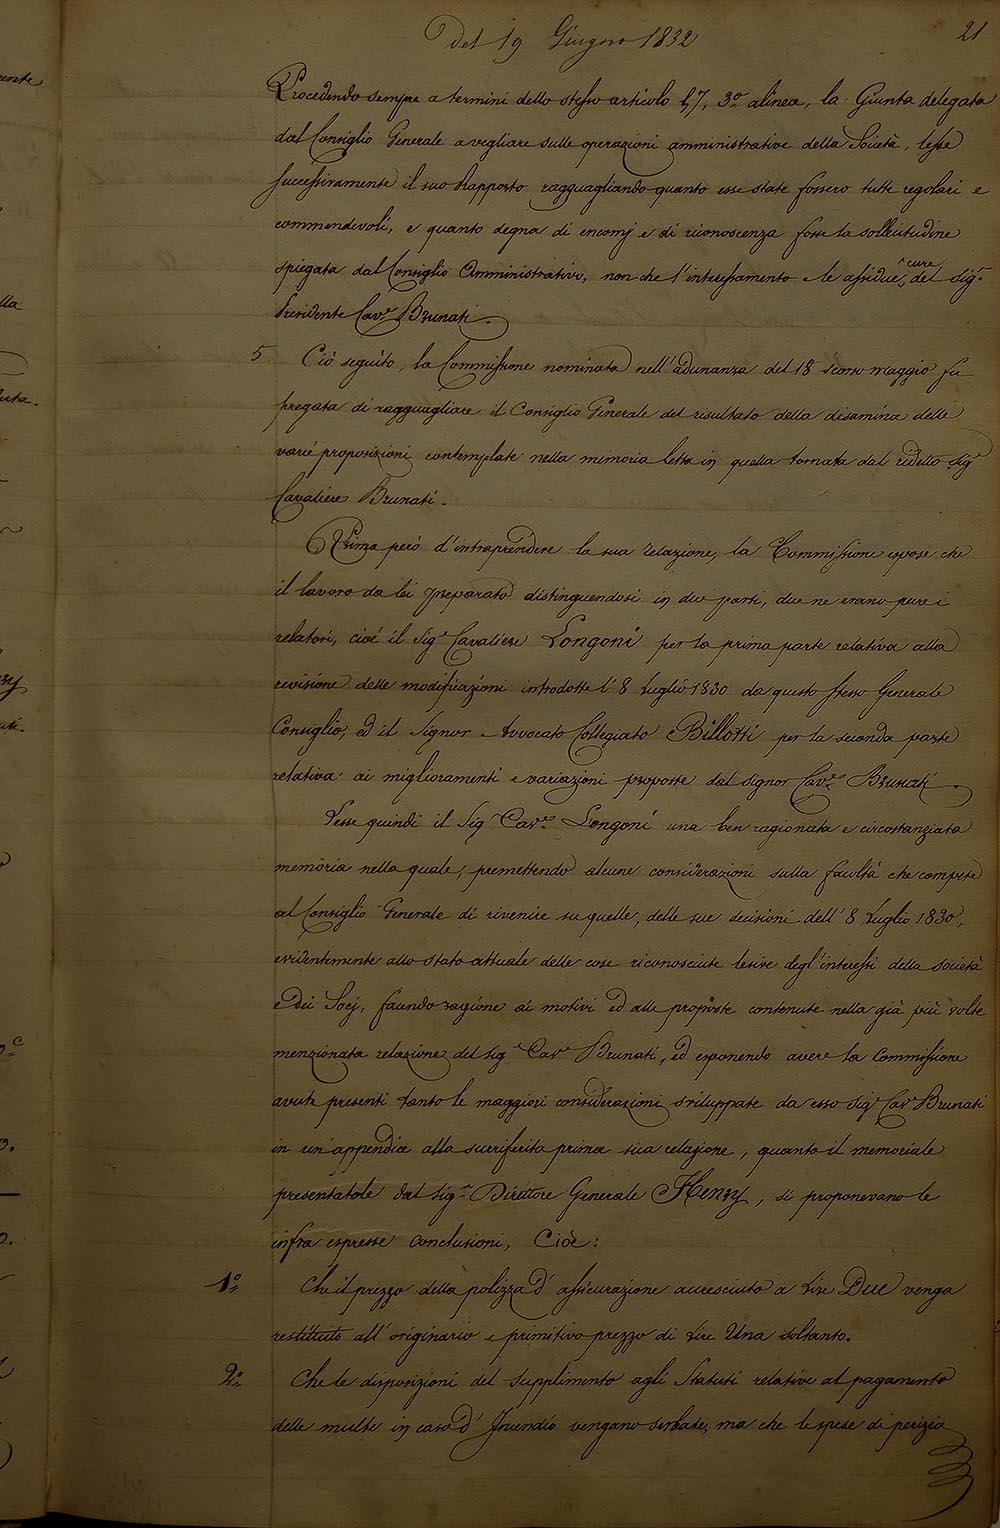 Del 19 Giugno 1832
21
Procedendo sempre a termini dello stesso articolo 47, 3.o alinea, la Giunta delegata
dal Consiglio Generale a vegliare sulle operazioni amministrative della Società, lesse
successivamente il suo Rapporto ragguagliando quanto esse state fossero tutte regolari e
commendevoli, e quanto degna di encomj e di riconoscenza fosse la sollecitudine
spiegata dal Consiglio Amministrativo, non che l'interessamento e le assidue cure del Sig.r
Presidente Cav.e Brunati.
5. Ciò seguito, la Commissione nominata nell'adunanza del 18 scorso maggio fu
pregata di ragguagliare il Consiglio Generale del risultato della disamina delle
varie proposizioni contemplate nella memoria letta in quella tornata dal ridetto Sig.r
Cavaliere Brunati.
Prima però d'intraprendere la sua relazione, la Commissione espose che
il lavoro da lei preparato distinguendosi in due parti, due ne erano pure i
relatori, cioè il Sig.r Cavaliere Longoni per la prima parte relativa alla
revisione delle modificazioni introdotte l'8 Luglio 1830 da questo stesso Generale
Consiglio, ed il Signor Avvocato Collegiato Billotti per la seconda parte
relativa ai miglioramenti e variazioni proposte dal Signor Cav.e Brunati.
Lesse quindi il Sig.r Cav.e Longoni una ben ragionata e circostanziata
memoria nella quale, premettendo alcune considerazioni sulla facoltà che compete
al Consiglio Generale di rivenire su quelle, delle sue decisioni dell'8 Luglio 1830,
evidentemente allo stato attuale delle cose riconosciute lesive degl'interessi della società
e dei Socj, facendo ragione ai motivi ed alle proposte contenute nella già più volte
menzionata relazione del Sig.r Cav.e Brunati, ed esponendo avere la Commissione
avute presenti tanto le maggiori considerazioni sviluppate da esso Sig.r Cav.e Brunati
in un'appendice alla surriferita prima sua relazione, quanto il memoriale
presentatole dal Sig.r Direttore Generale Henry, si proponevano le
infra espresse conclusioni, Cioè:
1.o Che il prezzo della polizza d'assicurazione accresciuto a Lire Due venga
restituito all'originario e primitivo prezzo di Lire Una soltanto.
2.o Che le disposizioni del Supplimento agli Statuti relative al pagamento
delle multe in caso d'Incendio vengano serbate, ma che le spese di perizia